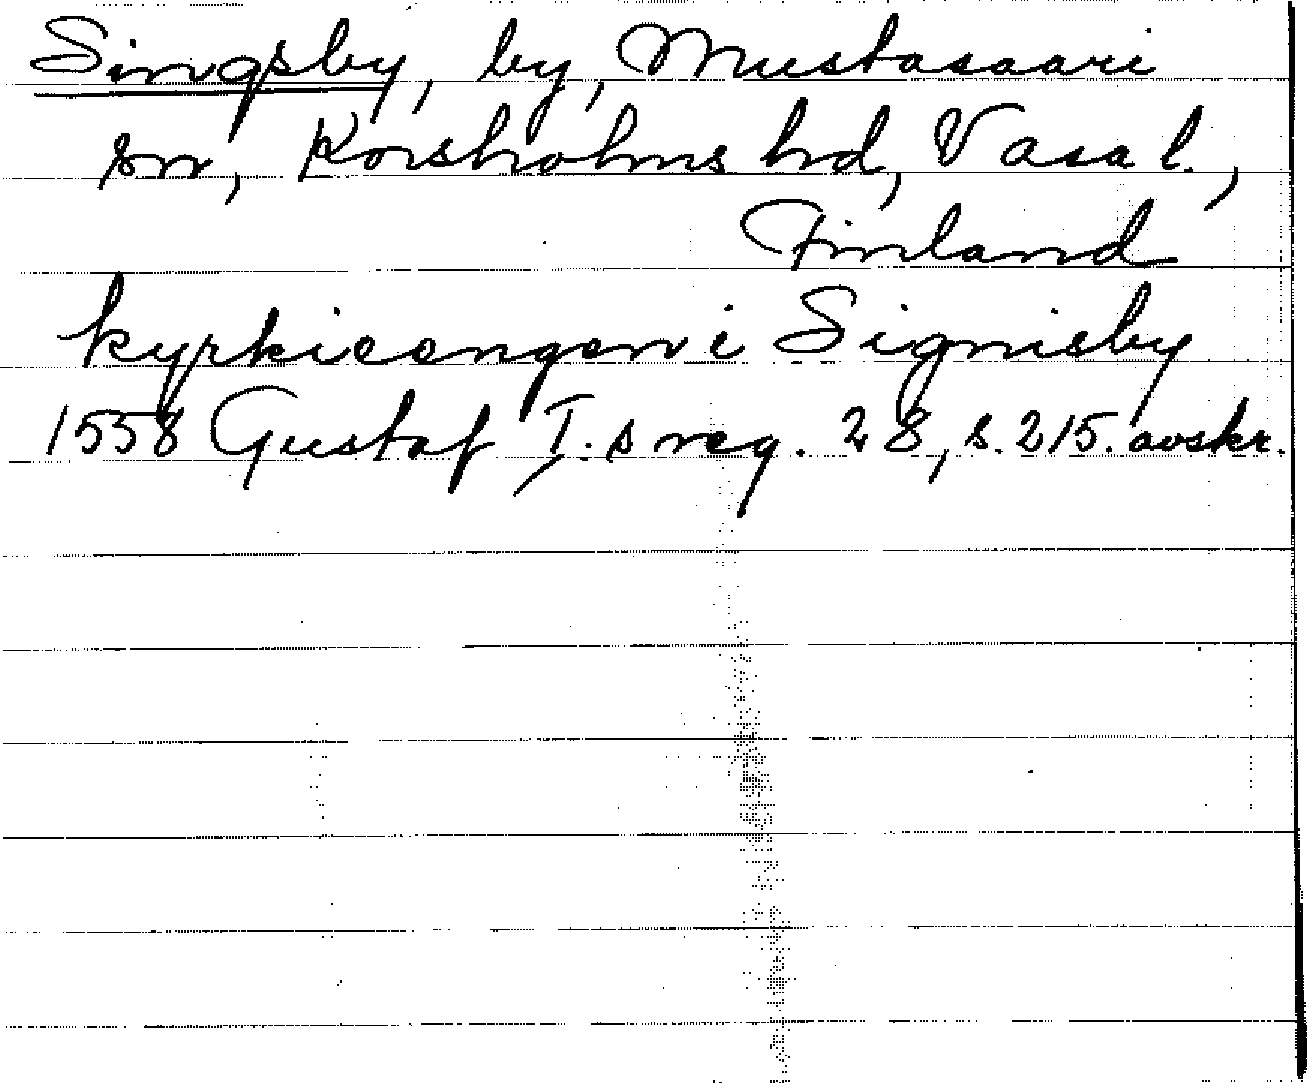 Singsby, by, Mustasaari
sn, Korsholms hd, Vasa l.,
Finland
kyrkieengen i Signieby
1558 Gustaf I:s reg. 28, s. 215. avskr.